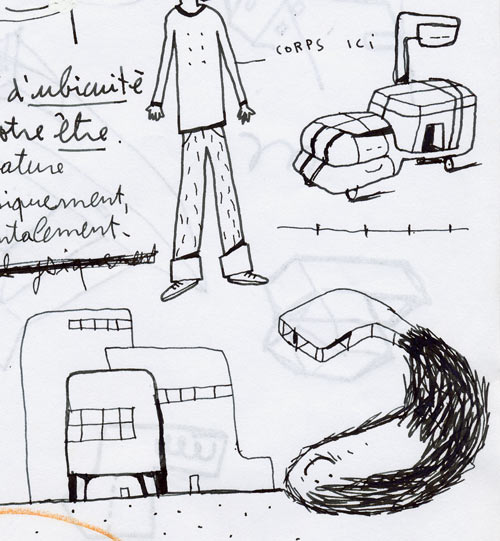 CORPS ICI
d'ubicuité
otre être.
ature
iquement,
ntalement-